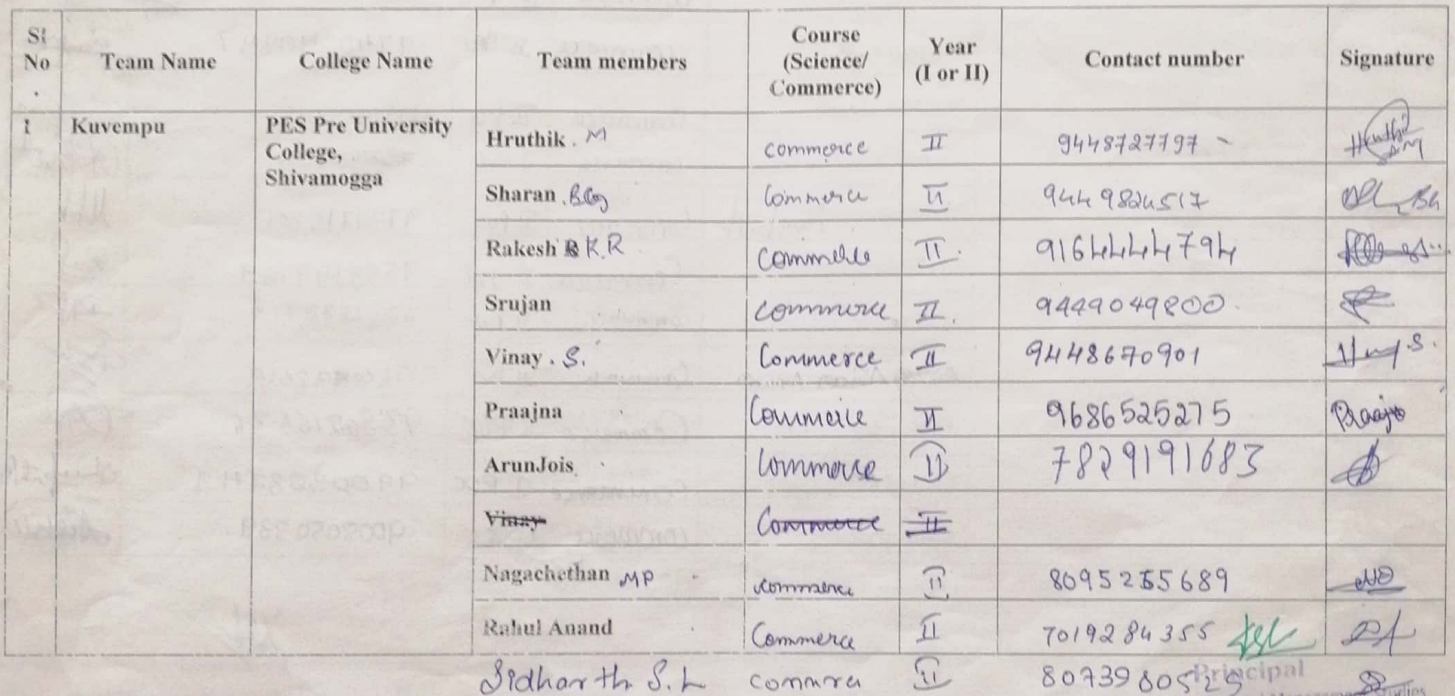 Sl No . Team Name College Name Team members Course (Science/ Commerce) Year (I or II) Contact number Signature
1 Kuvempu PES Pre University College, Shivamogga Hruthik . M commerce II 9448727797
Sharan Commerce II 9449824517
Rakesh K.R Commerce II 9164444794
Srujan commerce II. 9449049800
Vinay . S. Commerce II 9448670901
Praajna Commerce II 9686525275 Praajna
ArunJois Commerce II 7829191683
Vinay Commerce II
Nagachethan MP commerce II 8095255689
Rahul Anand Commerce II 7019284355
Sidharth S.L commerce II
Principal